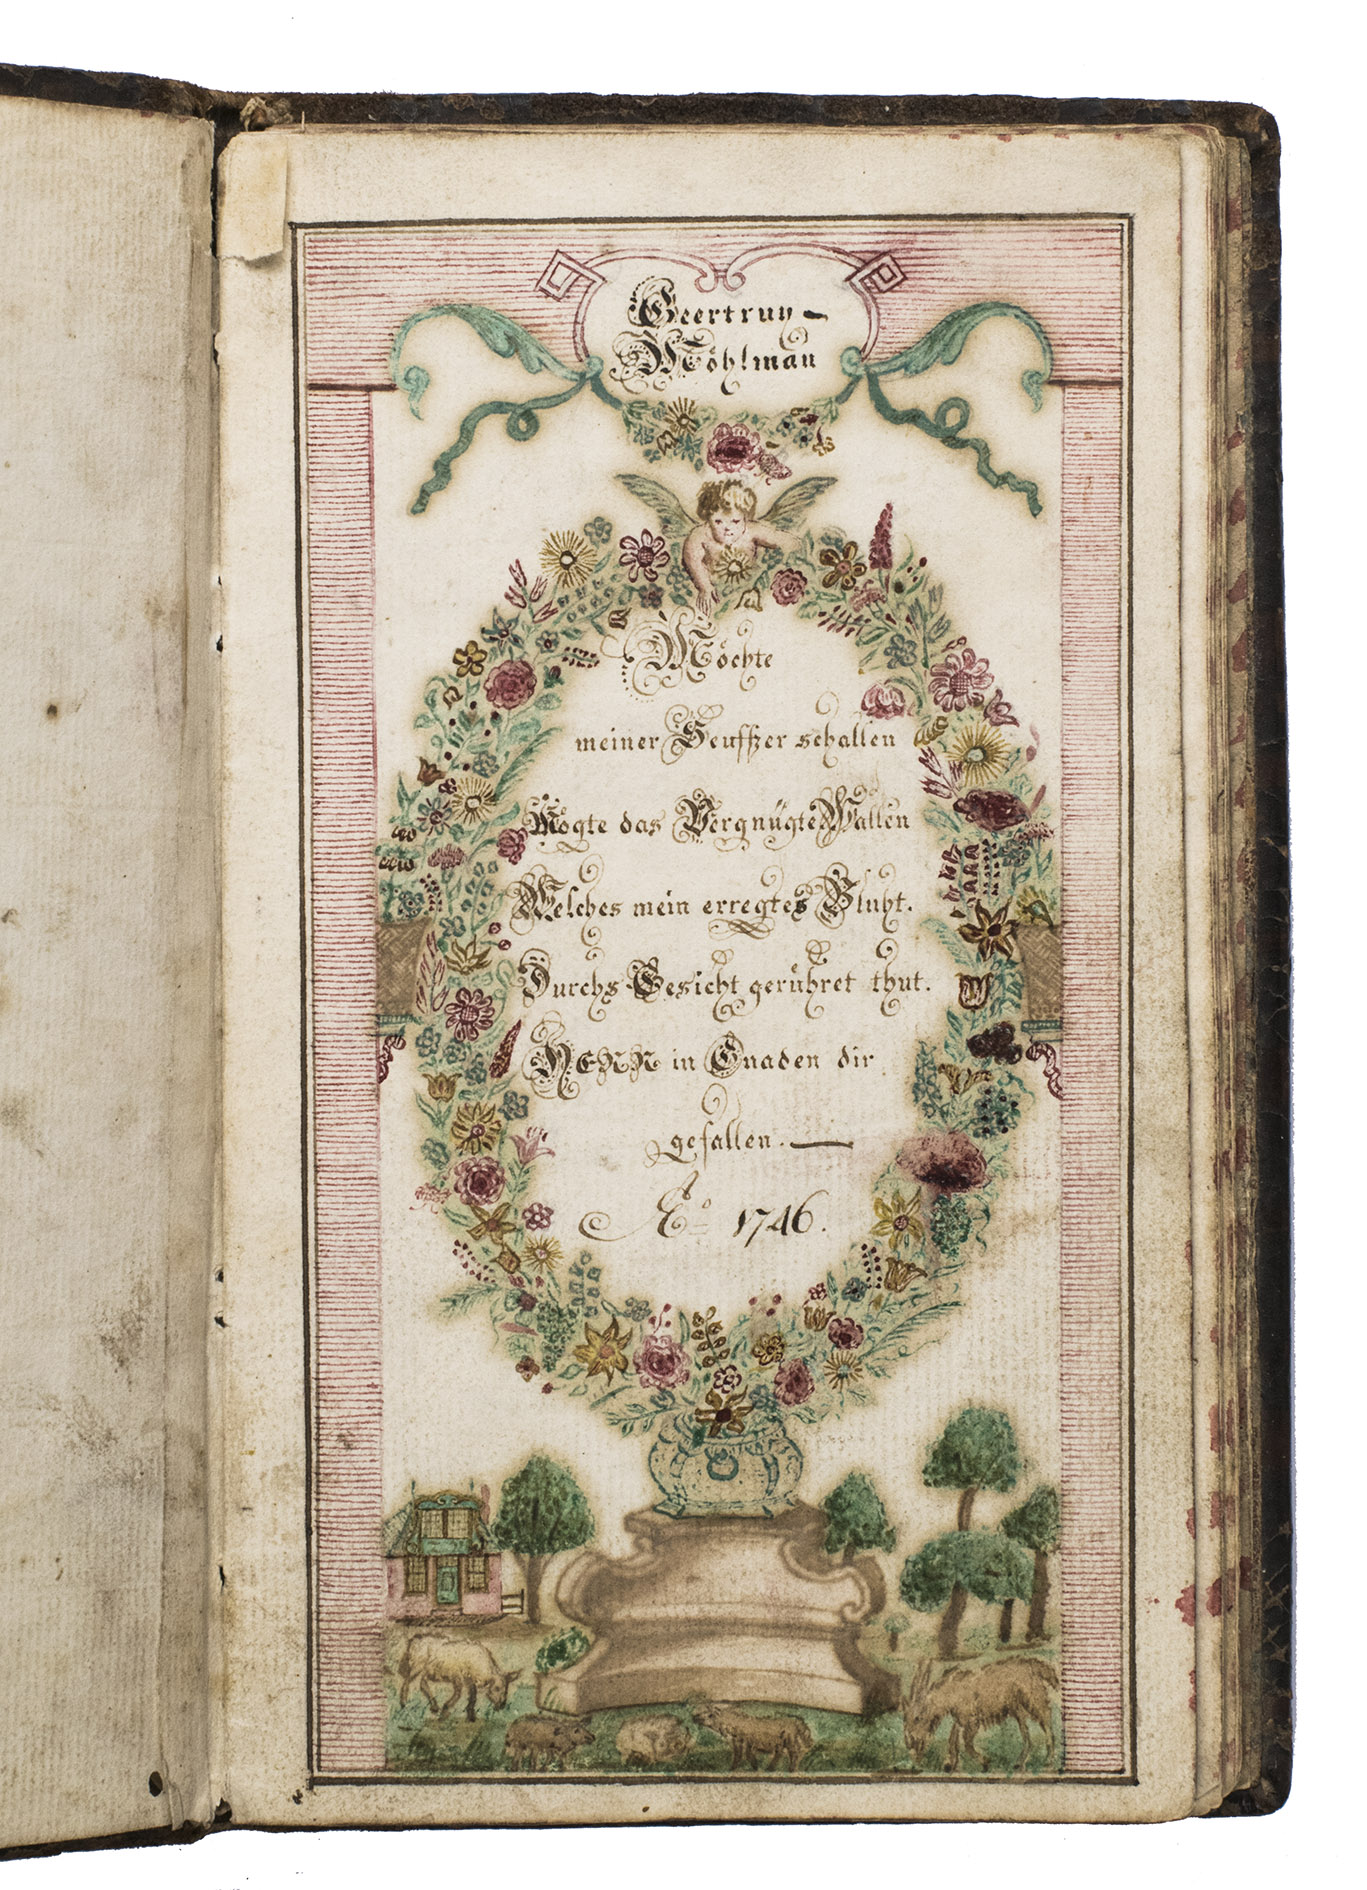 Geertruy
Möhlman
Möchte
meiner Seuffzer schallen
Mögte das Vergnügte Wallen
Welches mein erregtes Bluht.
Durchs Gesicht gerühret thut.
HERR in Gnaden dir
gefallen.
Ao 1746.